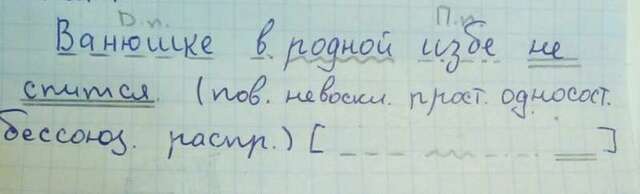 Д.п. П.п
Ванюшке в родной избе не
спится. (пов. невоскл. прост. односост.
бессоюз. распр.) [ ]